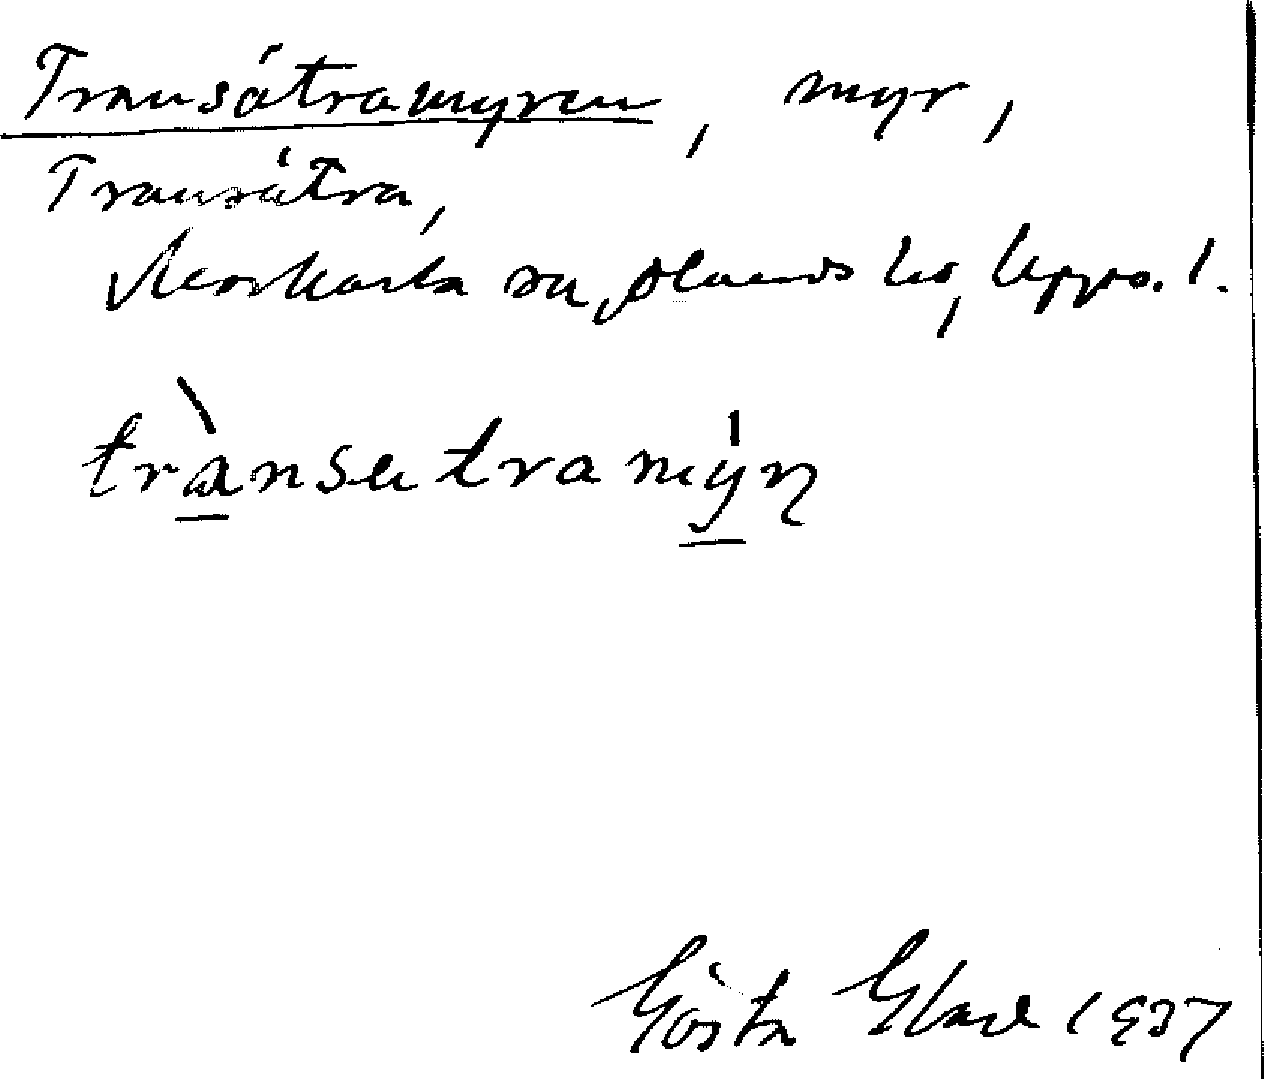 Transätramyren, myr,
Transätra,
Morkarla sn, Olands hd, Upps. l.
trànsetramýn
Gösta 1937